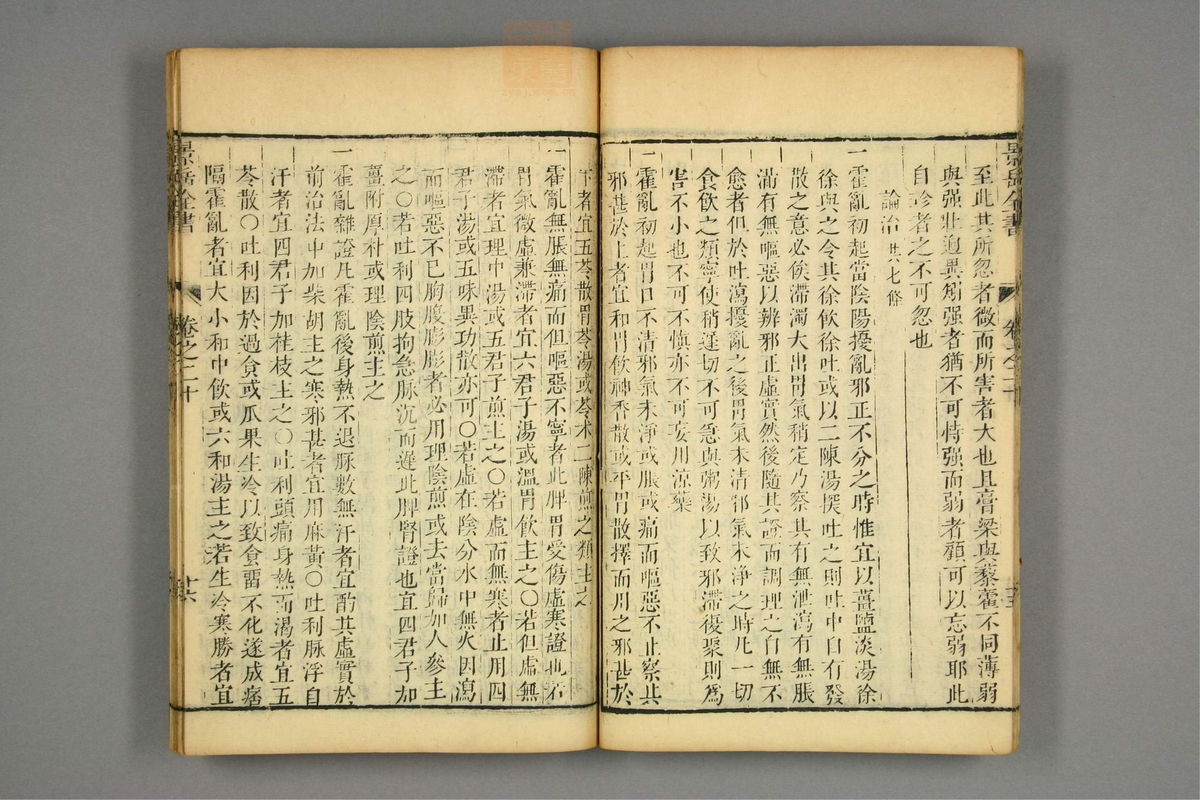 景岳全書
卷之二十
至此其所忽者微而所害者大也且膏粱與藜藿不同薄弱
與强壯迥異矧强者猶不可恃强而弱者顧可以忘弱耶此
自診者之不可忽也
論治 共七條
一霍亂初起當陰陽擾亂邪正不分之時惟宜以薑鹽淡湯徐
徐與之令其徐飲徐吐或以二陳湯探吐之則吐中自有發
散之意必俟滯濁大出胃氣稍定乃察其有無泄瀉有無脹
滿有無嘔惡以辨邪正虛實然後隨其證而調理之自無不
愈者但於吐瀉擾亂之後胃氣未清邪氣未淨之時凡一切
食飲之類寧使稍遲切不可急與粥湯以致邪滯復聚則為
害不小也不可不慎亦不可妄用涼藥
一霍亂初起胃口不清邪氣未淨或脹或痛而嘔惡不止察其
邪甚於上者宜和胃飲神香散或平胃散擇而用之邪甚於
下者宜五苓散胃苓湯或苓术二陳煎之類主之
一霍亂無脹無痛而但嘔惡不寧者此脾胃受傷虛寒證也若
胃氣微虛兼滯者宜六君子湯或溫胃飲主之〇若但虛無
滯者宜理中湯或五君子煎主之〇若虛而無寒者止用四
君子湯或五味異功散亦可〇若虛在陰分水中無火因瀉
而嘔惡不已胸腹膨膨者必用理陰煎或去當歸加人參主
之〇若吐利四肢拘急脉沉而遲此脾腎證也宜四君子加
薑附厚朴或理陰煎主之
一霍亂雜證凡霍亂後身熱不退脉數無汗者宜酌其虛實於
前治法中加柴胡主之寒邪甚者宜用麻黃〇吐利脉浮自
汗者宜四君子加桂枝主之〇吐利頭痛身熱而渴者宜五
苓散〇吐利因於過食或瓜果生冷以致食留不化遂成痞
隔霍亂者宜大小和中飲或六和湯主之若生冷寒勝者宜
景岳全書
卷之二十
廿六